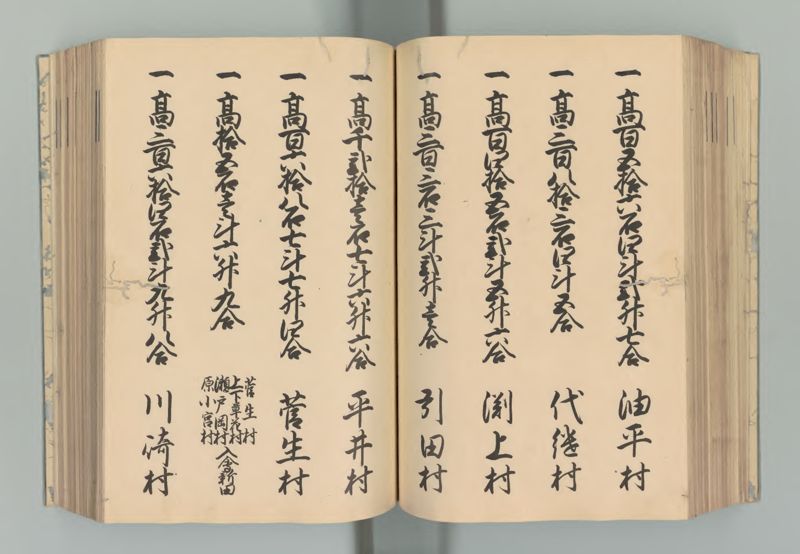 一 高百五拾六石四斗弐升七合 油平村
一 高三百八拾三石四斗五合 代継村
一 高百四拾五石弐斗五升六合 渕上村
一 高三百三石三斗弐升壱合 引田村
一 高千弐拾壱石七斗六升六合 平井村
一 高百六拾八石七斗七升四合 菅生村
一 高拾五石壱斗六升九合
菅生村
上下草花村
瀬戸岡村
原小宮村
入会新田
一 高三百六拾四石弐斗九升八合 川崎村